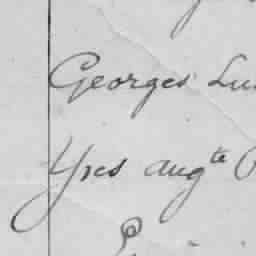 Georges Lu
Yves Augte